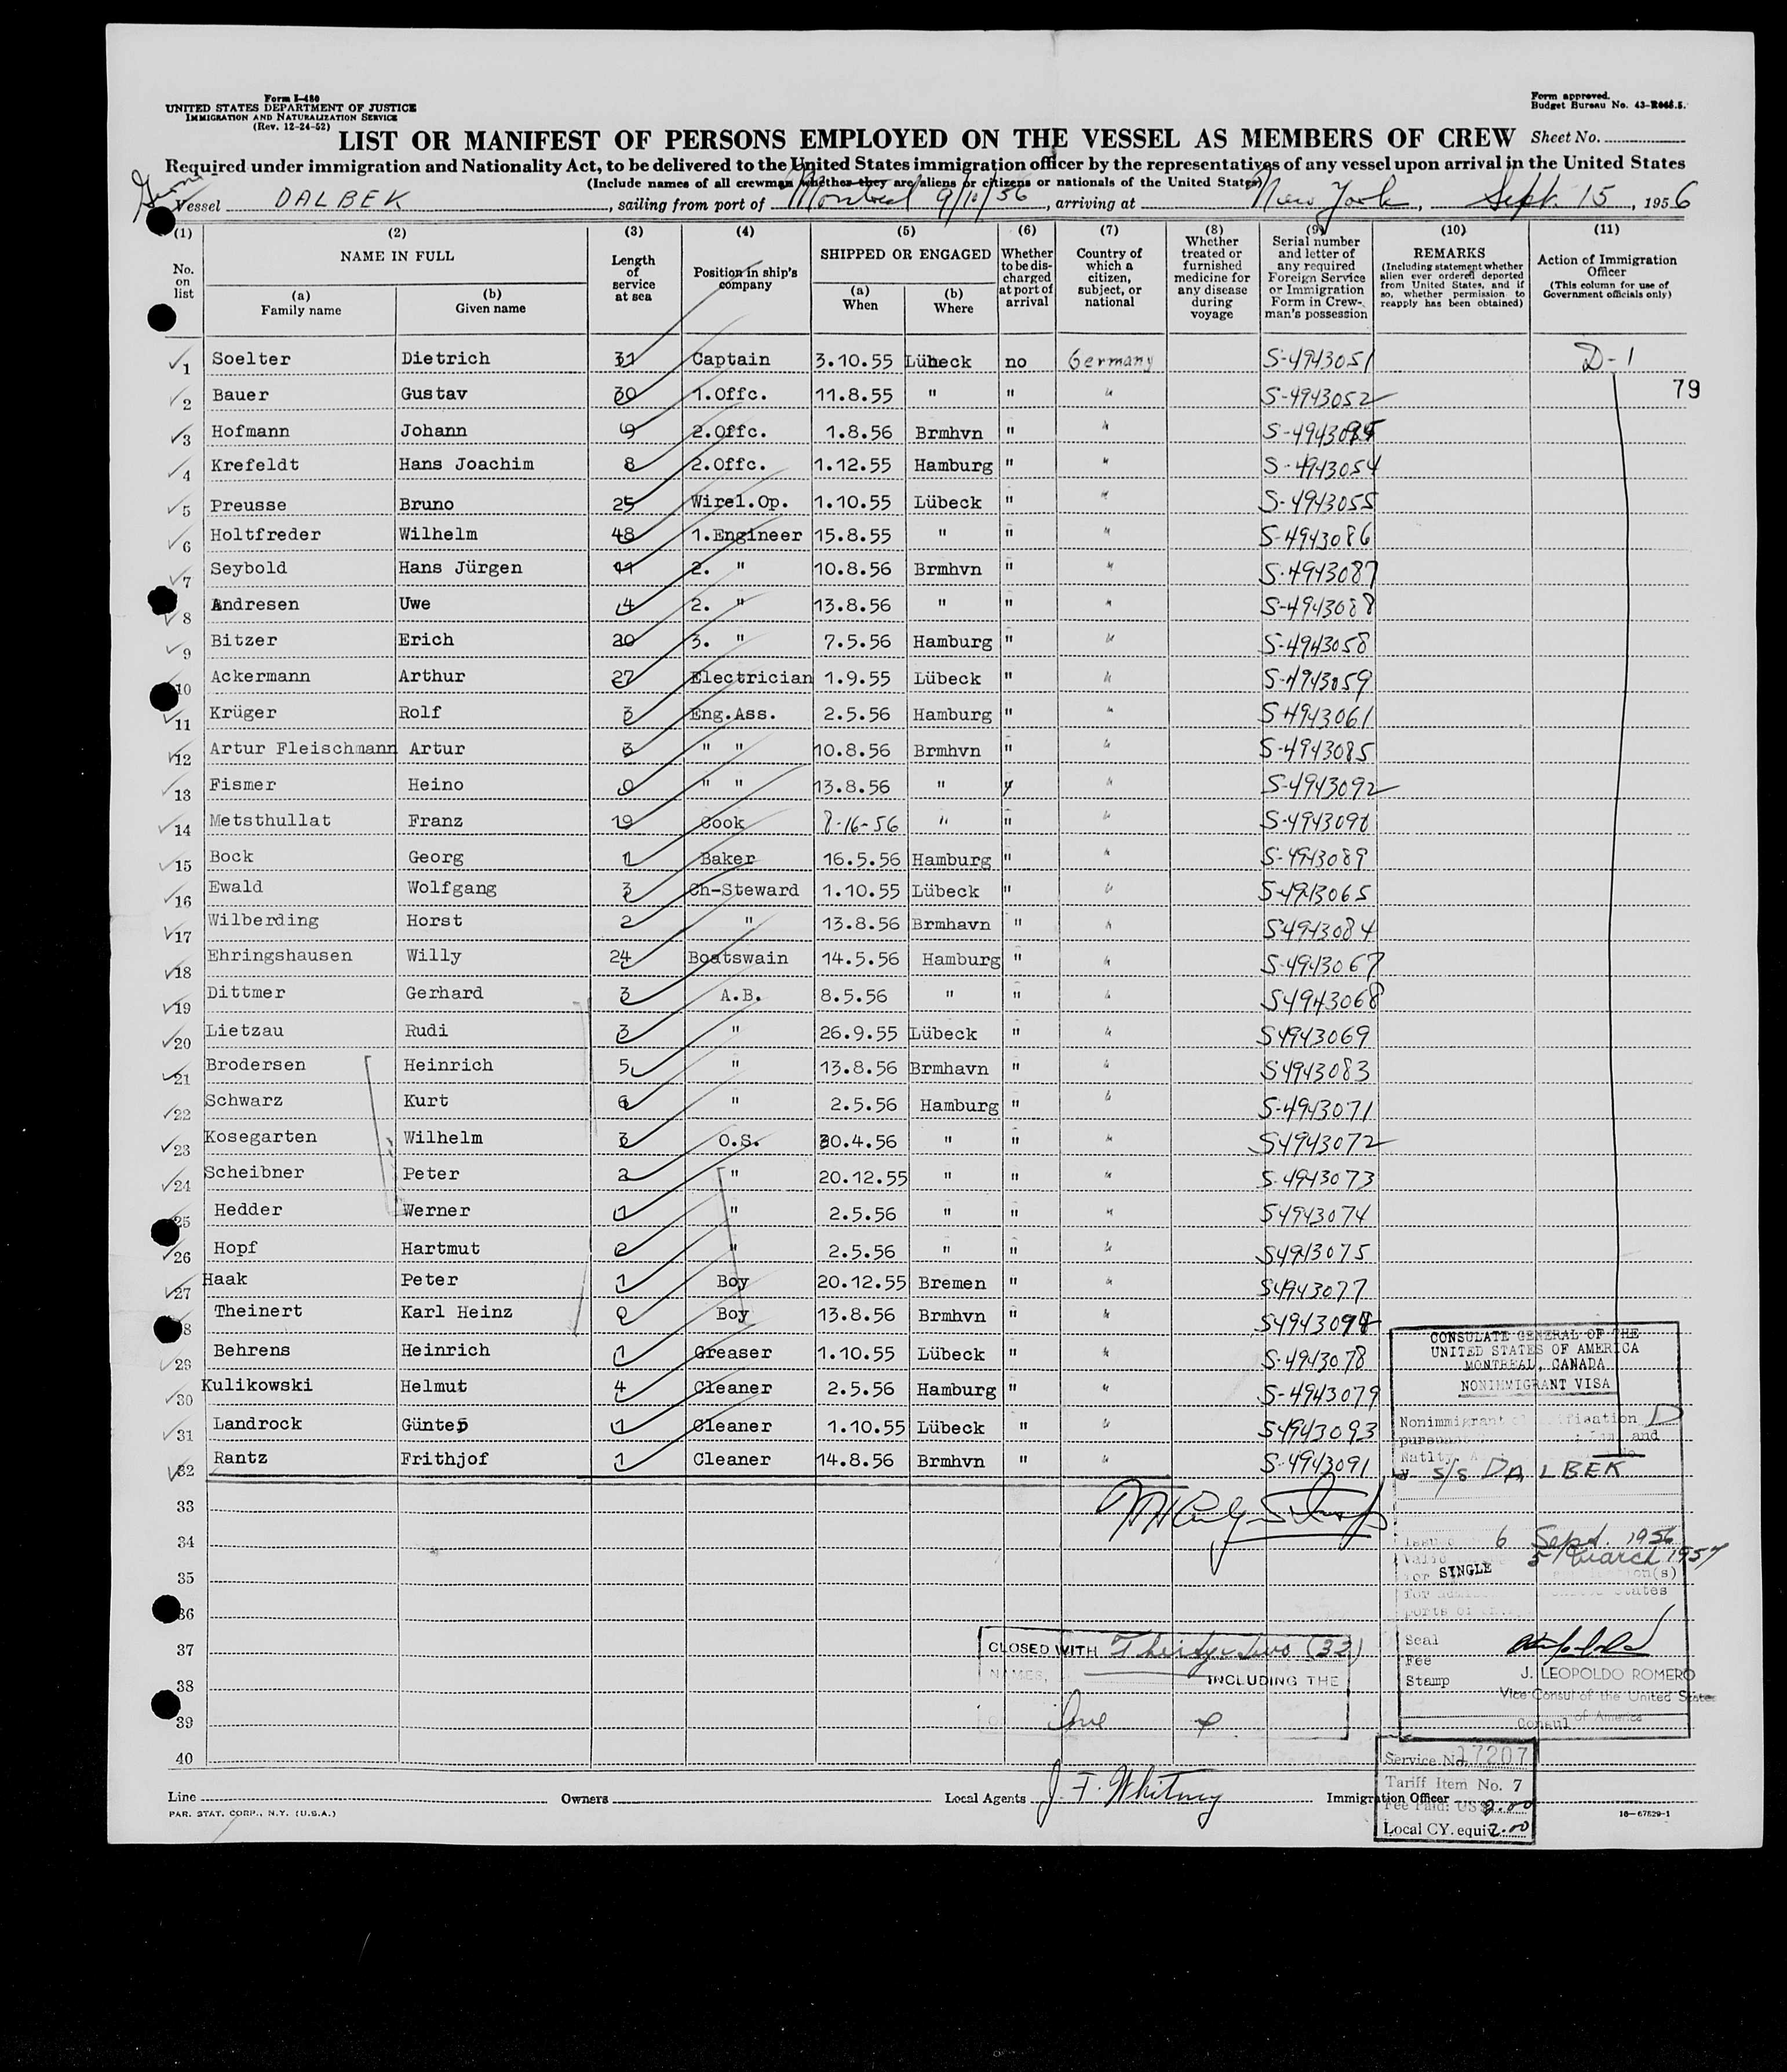 Form I-480
UNITED STATES DEPARTMENT OF JUSTICE
IMMIGRATION AND NATURALIZATION SERVICE
(Rev. 12-24-52)
Form approved.
Budget Bureau No. 43-R065.5.
LIST OR MANIFEST OF PERSONS EMPLOYED ON THE VESSEL AS MEMBERS OF CREW Sheet No.
Required under immigration and Nationality Act, to be delivered to the United States immigration officer by the representatives of any vessel upon arrival in the United States
(Include names of all crewman whether they are aliens or citizens or nationals of the United States)
Vessel DALBEK, sailing from port of Montreal 9/10/56, arriving at New York, Sept. 15, 1956
(1) (2) (3) (4) (5) (6) (7) (8) (9) (10) (11)
No. on list
NAME IN FULL
(a) Family name
(b) Given name
Length of service at sea
Position in ship's company
SHIPPED OR ENGAGED
(a) When
(b) Where
Whether to be discharged at port of arrival
Country of which a citizen, subject, or national
Whether treated or furnished medicine for any disease during voyage
Serial number and letter of any required Foreign Service or Immigration Form in Crewman's possession
REMARKS
(Including statement whether alien ever ordered deported from United States, and if so, whether permission to reapply has been obtained)
Action of Immigration Officer
(This column for use of Government officials only)
1 Soelter Dietrich 31 Captain 3.10.55 Lübeck no Germany S-4943051 D-1
79
2 Bauer Gustav 30 1.Offc. 11.8.55 " " " S-4943052
3 Hofmann Johann 9 2.Offc. 1.8.56 Brmhvn " "
4 Krefeldt Hans Joachim 8 2.Offc. 1.12.55 Hamburg " " S-4943054
5 Preusse Bruno 25 Wirel.Op. 1.10.55 Lübeck " " S-4943055
6 Holtfreder Wilhelm 48 1.Engineer 15.8.55 " " " S-4943086
7 Seybold Hans Jürgen 11 2. " 10.8.56 Brmhvn " " S-4943087
8 Andresen Uwe 4 2. " 13.8.56 " " " S-4943088
9 Bitzer Erich 20 3. " 7.5.56 Hamburg " " S-4943058
10 Ackermann Arthur 27 Electrician 1.9.55 Lübeck " " S-4943059
11 Krüger Rolf 3 Eng.Ass. 2.5.56 Hamburg " " S4943061
12 Artur Fleischmann Artur 3 " " 10.8.56 Brmhvn " " S-4943085
13 Fismer Heino 0 " " 13.8.56 " " " S-4943092
14 Metsthullat Franz 19 Cook 8-16-56 " " " S-4943090
15 Bock Georg 1 Baker 16.5.56 Hamburg " " S-4943089
16 Ewald Wolfgang 3 Ch-Steward 1.10.55 Lübeck " " S4943065
17 Wilberding Horst 2 " 13.8.56 Brmhavn " " S4943084
18 Ehringshausen Willy 24 Boatswain 14.5.56 Hamburg " " S-4943067
19 Dittmer Gerhard 3 A.B. 8.5.56 " " " S4943068
20 Lietzau Rudi 3 " 26.9.55 Lübeck " " S4943069
21 Brodersen Heinrich 5 " 13.8.56 Brmhavn " " S4943083
22 Schwarz Kurt 6 " 2.5.56 Hamburg " " S-4943071
23 Kosegarten Wilhelm 3 O.S. 30.4.56 " " " S4943072
24 Scheibner Peter 2 " 20.12.55 " " " S-4943073
25 Hedder Werner 1 " 2.5.56 " " " S4943074
26 Hopf Hartmut 0 " 2.5.56 " " " S4943075
27 Haak Peter 1 Boy 20.12.55 Bremen " " S4943077
28 Theinert Karl Heinz 0 Boy 13.8.56 Brmhvn " "
29 Behrens Heinrich 1 Greaser 1.10.55 Lübeck " " S-4943078
30 Kulikowski Helmut 4 Cleaner 2.5.56 Hamburg " " S-4943079
31 Landrock Günter 1 Cleaner 1.10.55 Lübeck " " S4943093
32 Rantz Frithjof 1 Cleaner 14.8.56 Brmhvn " " S-4943091
33
34
35
36
37
38
39
40
CONSULATE GENERAL OF THE
UNITED STATES OF AMERICA
MONTREAL, CANADA
NONIMMIGRANT VISA
Nonimmigrant D
and
s/s DALBEK
Issued 6 Sept. 1956
Valid 5 March 1957
for SINGLE
Seal
Fee
Stamp
J. LEOPOLDO ROMERO
Vice Consul of the United States
of America
Consul
CLOSED WITH Thirty-two (32)
NAMES, INCLUDING THE
Service No. 17207
Tariff Item No. 7
Fee Paid: US$ 2.00
Local CY. equiv. 2.00
Line Owners Local Agents J. F. Whitney Immigration Officer
PAR. STAT. CORP., N.Y. (U.S.A.)
16-67529-1